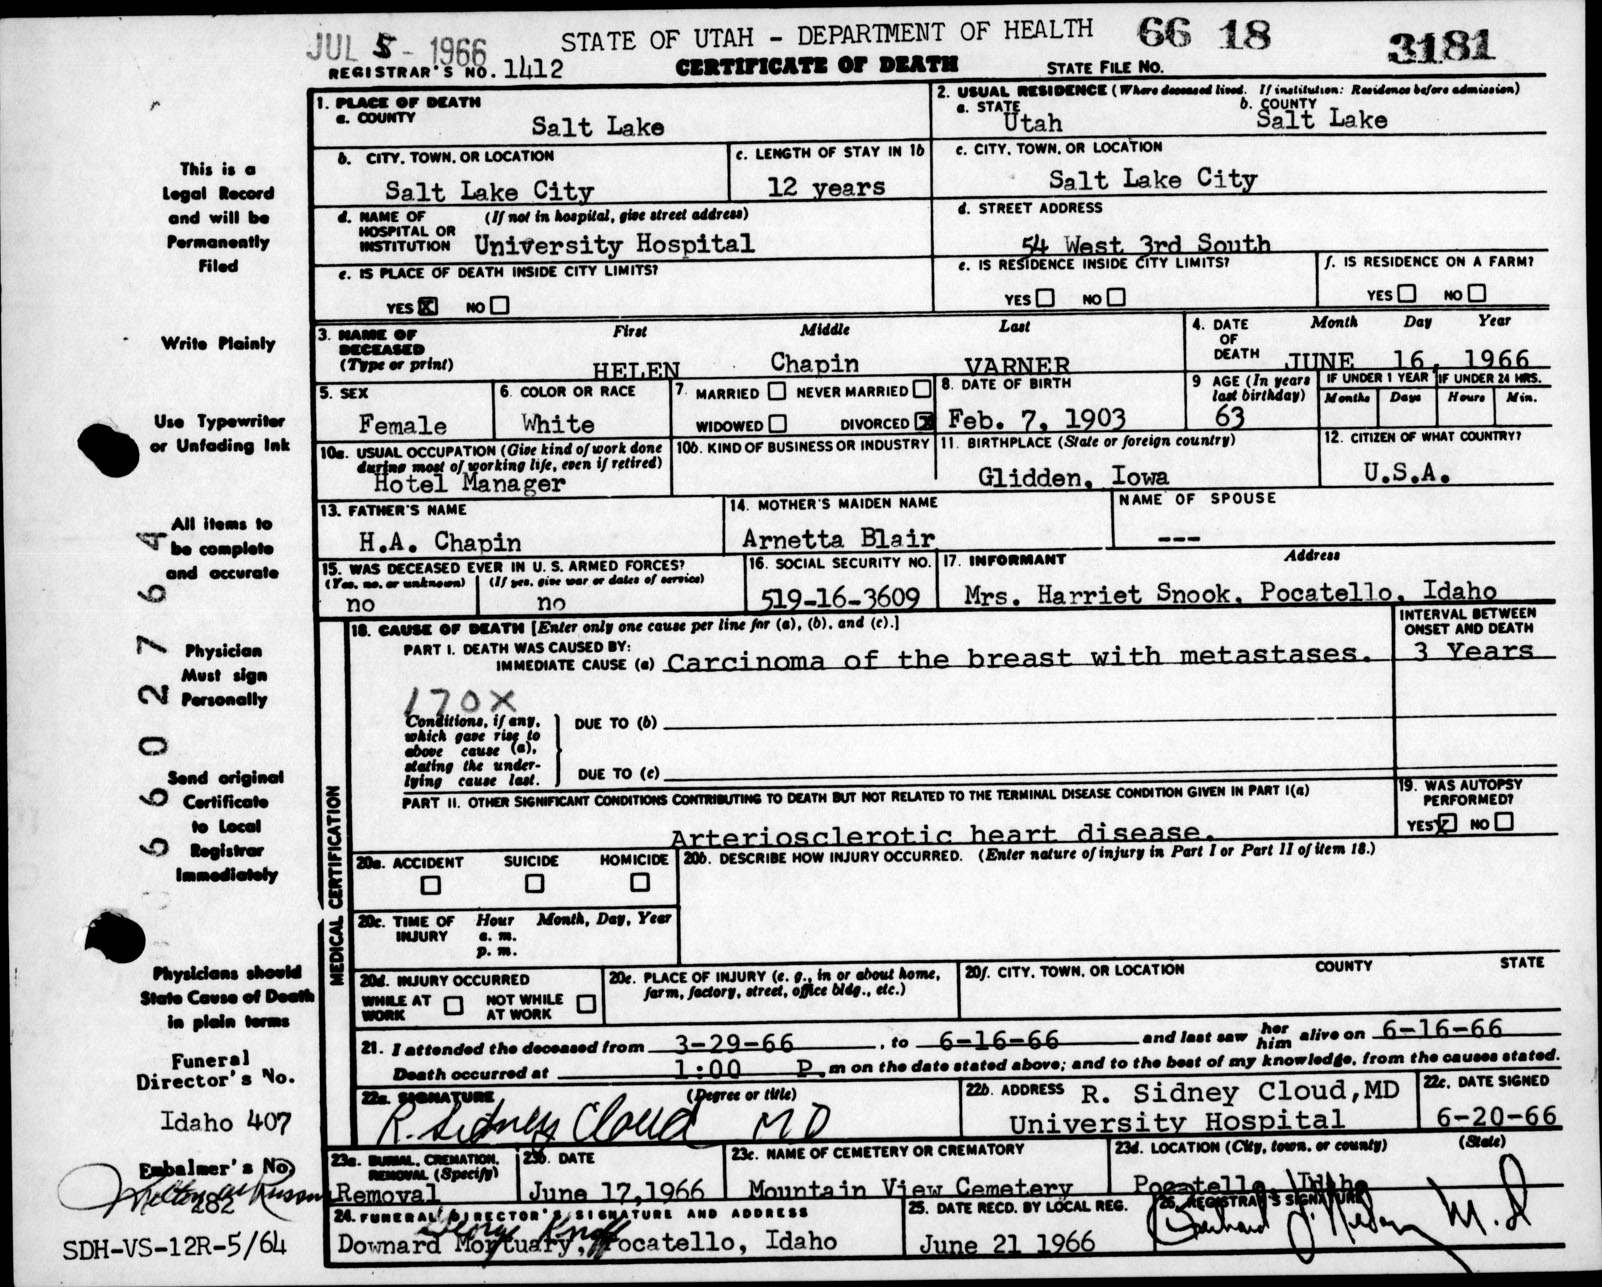 JUL 5 - 1966 STATE OF UTAH - DEPARTMENT OF HEALTH 66 18 3181
REGISTRAR'S NO. 1412 CERTIFICATE OF DEATH STATE FILE NO.
1. PLACE OF DEATH
a. COUNTY
Salt Lake
2. USUAL RESIDENCE (Where deceased lived. If institution: Residence before admission)
a. STATE b. COUNTY
Utah Salt Lake
b. CITY, TOWN, OR LOCATION
Salt Lake City
c. LENGTH OF STAY IN 1b
12 years
c. CITY, TOWN, OR LOCATION
Salt Lake City
d. NAME OF (If not in hospital, give street address)
HOSPITAL OR
INSTITUTION University Hospital
d. STREET ADDRESS
54 West 3rd South
e. IS PLACE OF DEATH INSIDE CITY LIMITS?
YES X NO
e. IS RESIDENCE INSIDE CITY LIMITS?
YES NO
f. IS RESIDENCE ON A FARM?
YES NO
3. NAME OF First Middle Last
DECEASED
(Type or print) HELEN Chapin VARNER
4. DATE Month Day Year
OF
DEATH JUNE 16, 1966
5. SEX
Female
6. COLOR OR RACE
White
7. MARRIED NEVER MARRIED
WIDOWED DIVORCED X
8. DATE OF BIRTH
Feb. 7, 1903
9 AGE (In years
last birthday)
63
IF UNDER 1 YEAR IF UNDER 24 HRS.
Months Days Hours Min.
10a. USUAL OCCUPATION (Give kind of work done
during most of working life, even if retired)
Hotel Manager
10b. KIND OF BUSINESS OR INDUSTRY
11. BIRTHPLACE (State or foreign country)
Glidden, Iowa
12. CITIZEN OF WHAT COUNTRY?
U.S.A.
13. FATHER'S NAME
H.A. Chapin
14. MOTHER'S MAIDEN NAME
Arnetta Blair
NAME OF SPOUSE
---
15. WAS DECEASED EVER IN U. S. ARMED FORCES?
(Yes, no, or unknown) (If yes, give war or dates of service)
no no
16. SOCIAL SECURITY NO.
519-16-3609
17. INFORMANT Address
Mrs. Harriet Snook, Pocatello, Idaho
MEDICAL CERTIFICATION
18. CAUSE OF DEATH [Enter only one cause per line for (a), (b), and (c).]
PART I. DEATH WAS CAUSED BY:
IMMEDIATE CAUSE (a) Carcinoma of the breast with metastases.
INTERVAL BETWEEN
ONSET AND DEATH
3 Years
170X
Conditions, if any,
which gave rise to
above cause (a),
stating the under-
lying cause last.
DUE TO (b)
DUE TO (c)
PART II. OTHER SIGNIFICANT CONDITIONS CONTRIBUTING TO DEATH BUT NOT RELATED TO THE TERMINAL DISEASE CONDITION GIVEN IN PART I(a)
Arteriosclerotic heart disease.
19. WAS AUTOPSY
PERFORMED?
YES X NO
20a. ACCIDENT SUICIDE HOMICIDE
20b. DESCRIBE HOW INJURY OCCURRED. (Enter nature of injury in Part I or Part II of item 18.)
20c. TIME OF Hour Month, Day, Year
INJURY a. m.
p. m.
20d. INJURY OCCURRED
WHILE AT NOT WHILE
WORK AT WORK
20e. PLACE OF INJURY (e. g., in or about home,
farm, factory, street, office bldg., etc.)
20f. CITY, TOWN, OR LOCATION COUNTY STATE
21. I attended the deceased from 3-29-66, to 6-16-66 and last saw her him alive on 6-16-66
Death occurred at 1:00 P. m on the date stated above; and to the best of my knowledge, from the causes stated.
22a. SIGNATURE (Degree or title)
R. Sidney Cloud MD
22b. ADDRESS R. Sidney Cloud, MD
University Hospital
22c. DATE SIGNED
6-20-66
23a. BURIAL, CREMATION,
REMOVAL (Specify)
Removal
23b. DATE
June 17, 1966
23c. NAME OF CEMETERY OR CREMATORY
Mountain View Cemetery
23d. LOCATION (City, town, or county) (State)
Pocatello, Idaho
24. FUNERAL DIRECTOR'S SIGNATURE AND ADDRESS
Downard Mortuary, Pocatello, Idaho
25. DATE RECD. BY LOCAL REG.
June 21 1966
26. REGISTRAR'S SIGNATURE
M.D
This is a
Legal Record
and will be
Permanently
Filed
Write Plainly
Use Typewriter
or Unfading Ink
All items to
be complete
and accurate
Physician
Must sign
Personally
Send original
Certificate
to Local
Registrar
Immediately
Physicians should
State Cause of Death
in plain terms
Funeral
Director's No.
Idaho 407
Embalmer's No.
282
SDH-VS-12R-5/64
6602764